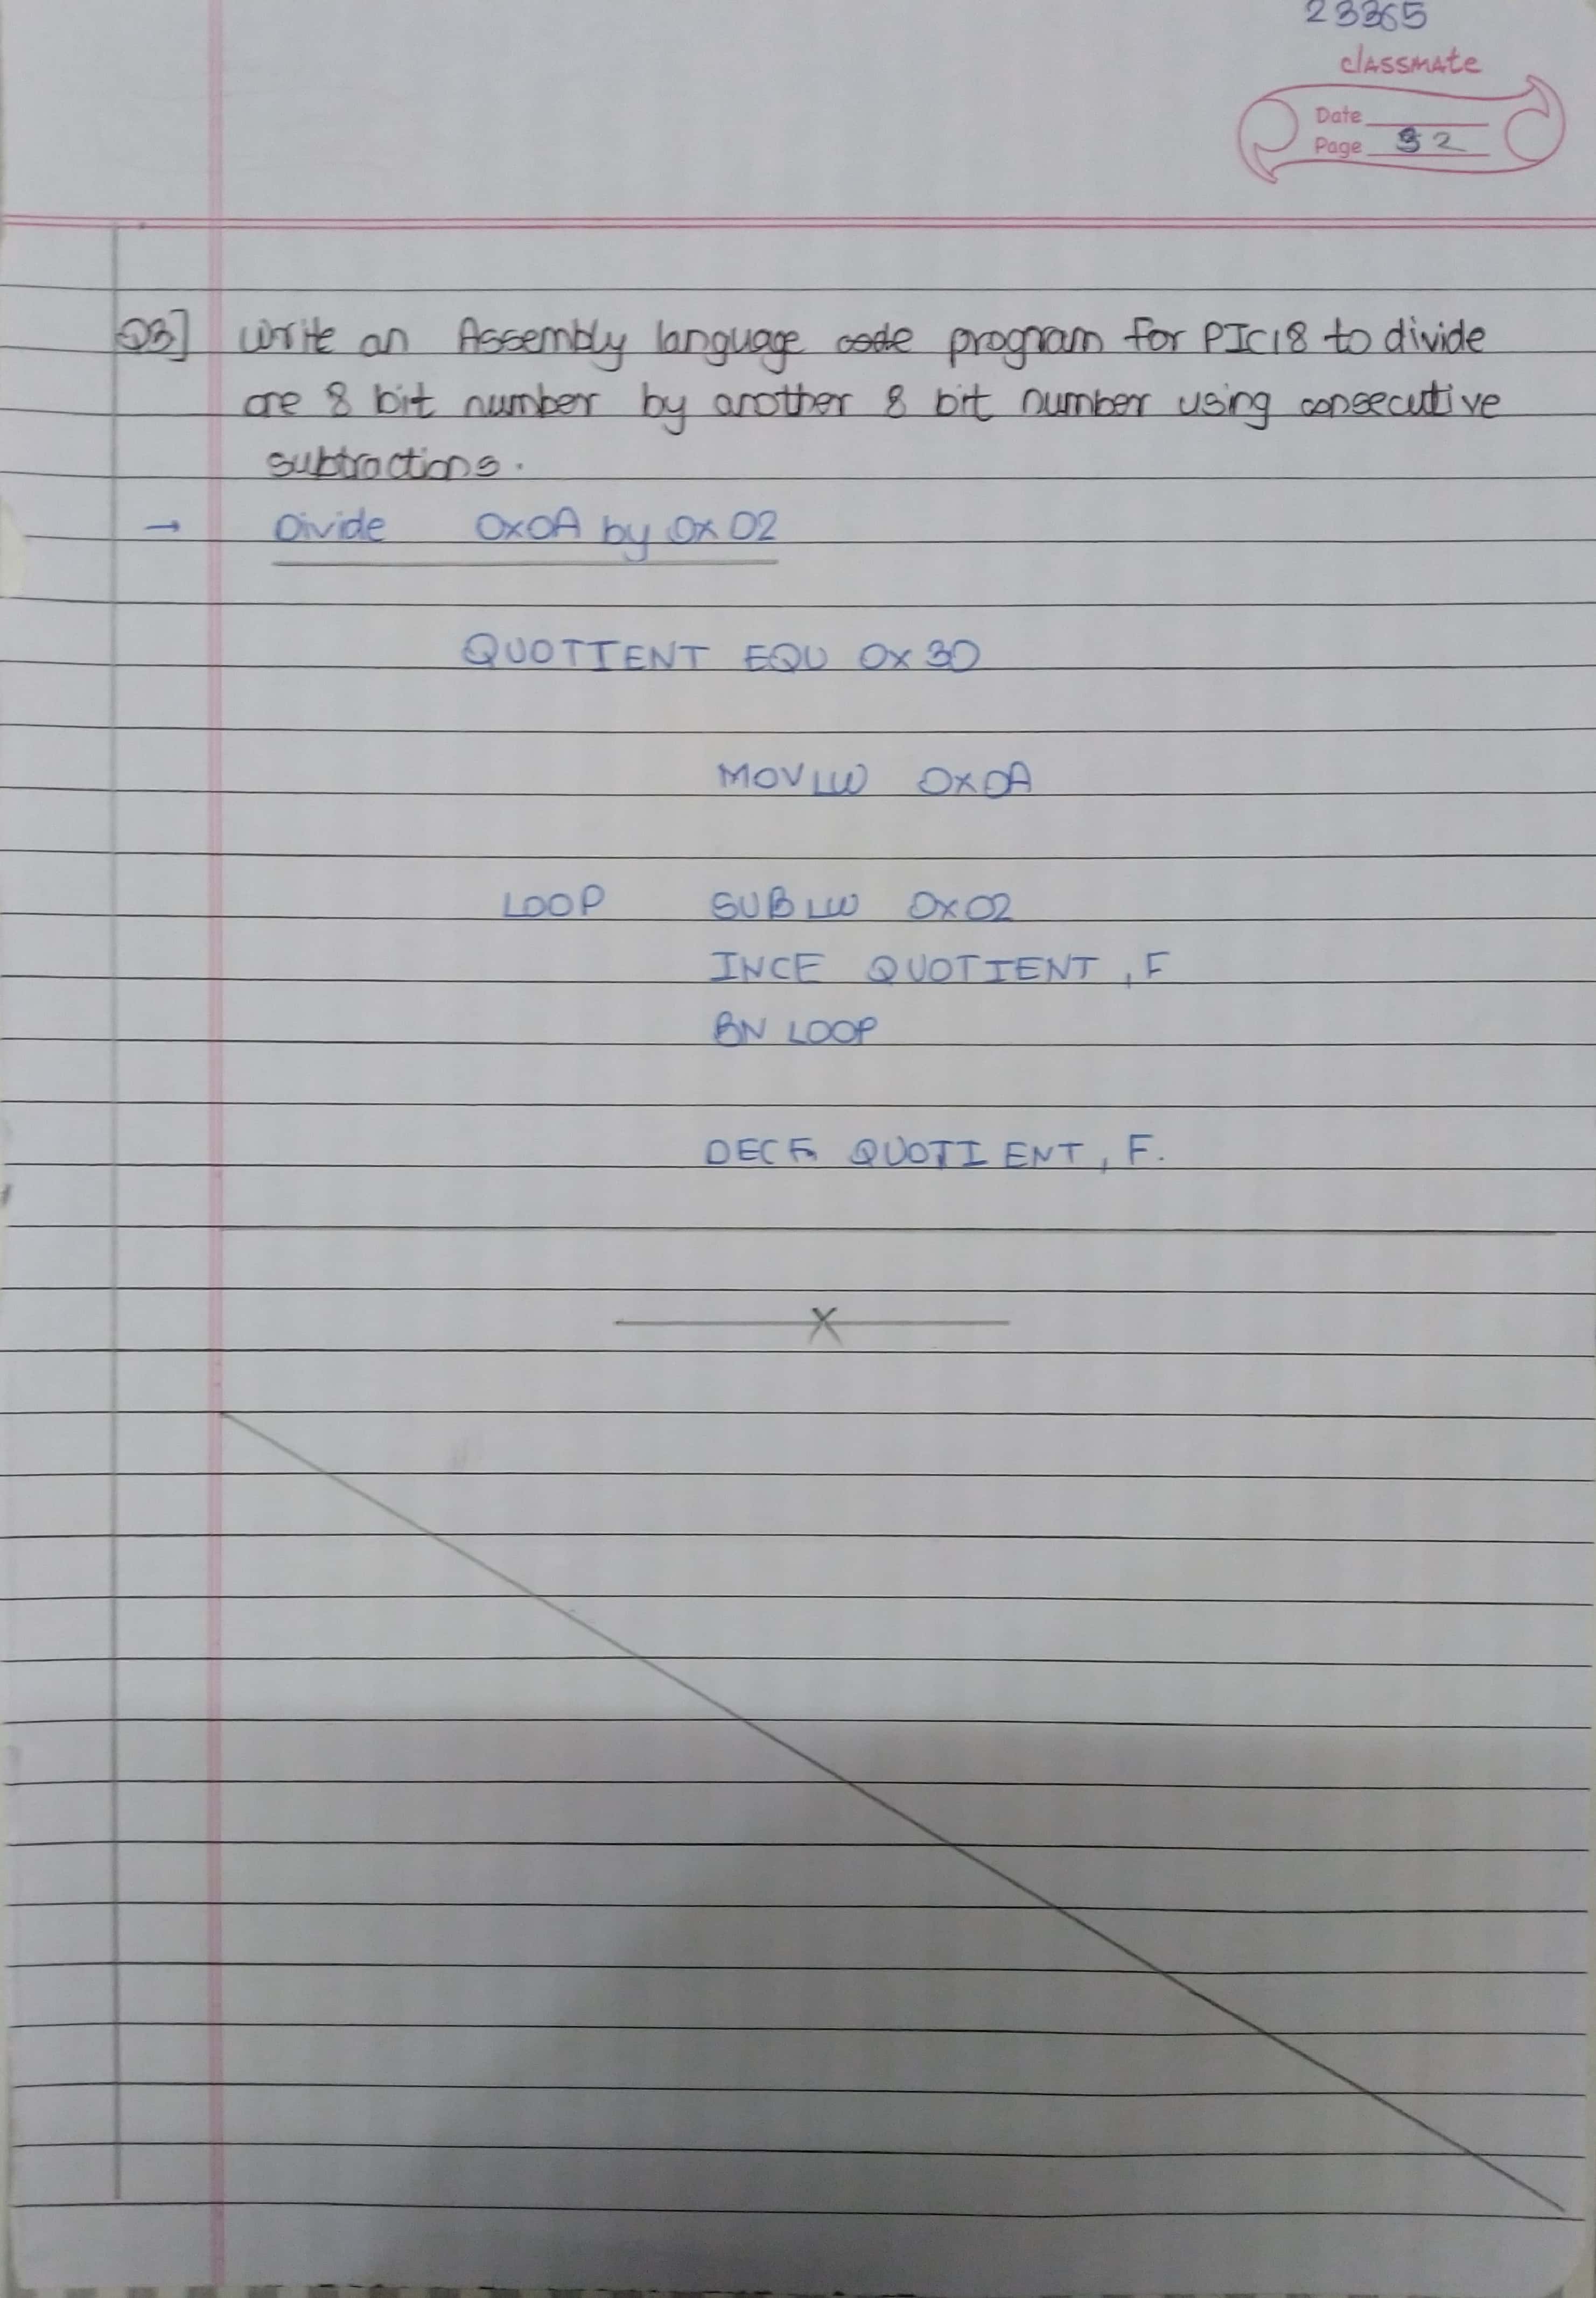 23365
classmate
Date
Page 32
Q3] Write an Assembly language code program for PIC18 to divide
one 8 bit number by another 8 bit number using consecutive
subtractions.
→ Divide 0x0A by 0x02
QUOTIENT EQU 0x30
MOVLW 0x0A
LOOP SUBLW 0x02
INCF QUOTIENT, F
BN LOOP
DECF QUOTIENT, F.
X